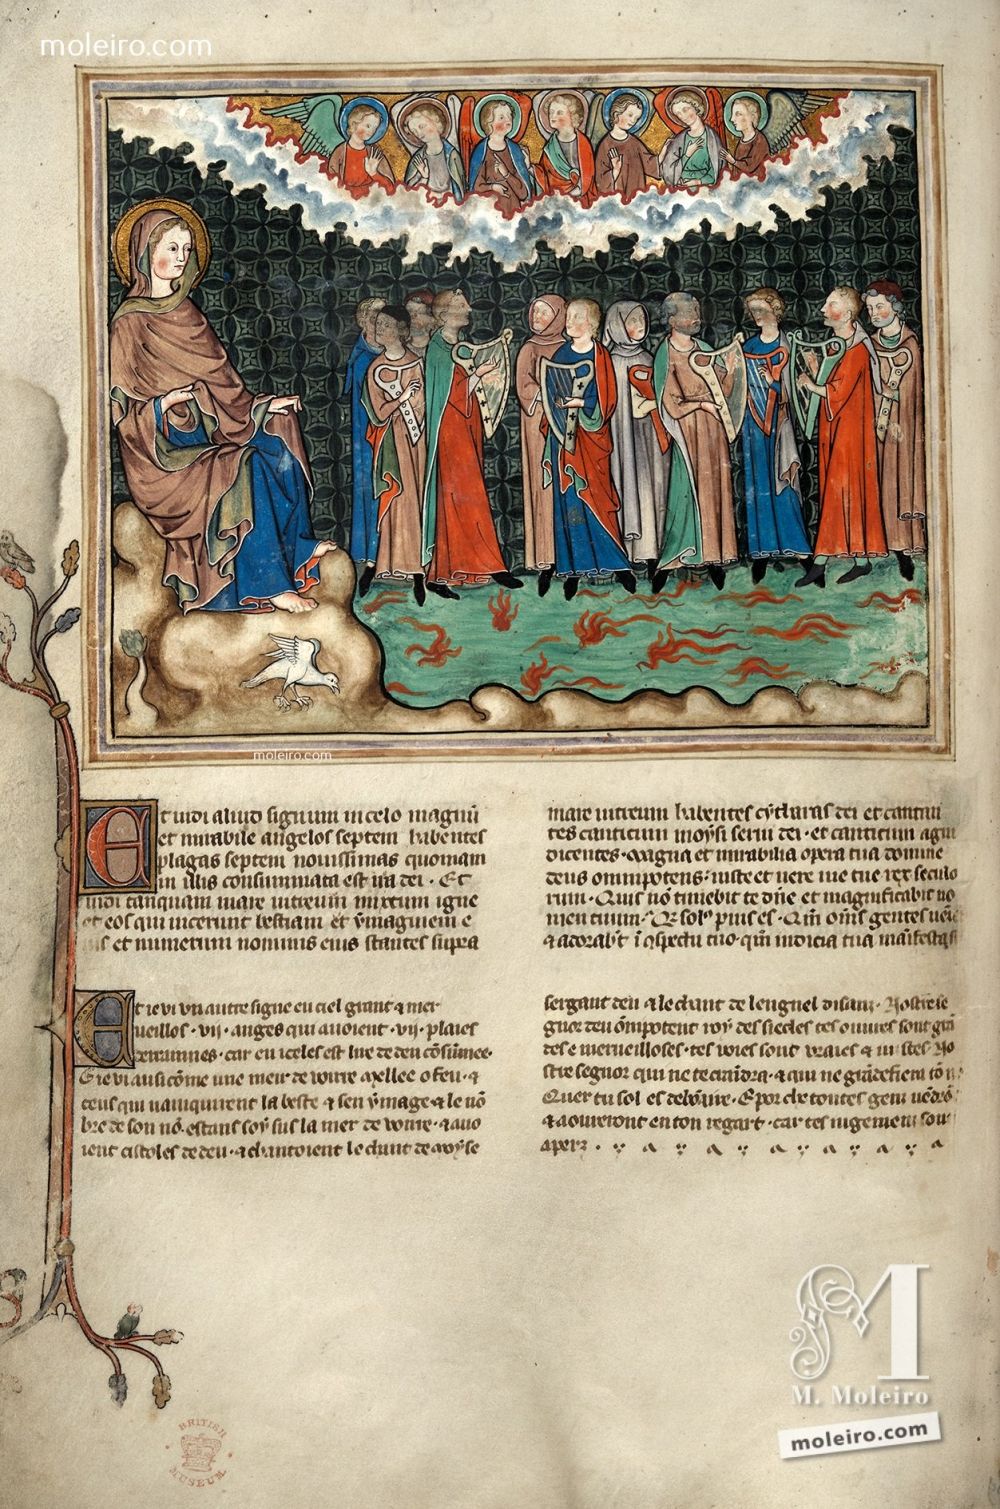 moleiro.com
moleiro.com
Et uidi aliud signum in celo magnū
et mirabile angelos septem habentes
plagas septem nouissimas quoniam
in illis consummata est ira dei · Et
uidi tanquam mare uitreum mixtum igne
et eos qui uicerunt bestiam et ymaginem e
ius et numerum nominis eius stantes supra
mare uitreum habentes cytharas dei et cantan
tes canticum moysi serui dei · et canticum agni
dicentes · magna et mirabilia opera tua domine
deus omnipotens : iuste et uere uie tue rex seculo
rum · Quis nō timebit te dn̄e et magnificabit no
men tuum · Qr solus pius es · Qm̄ om̄s gentes
& adorabt̄ ī cōspectu tuo · qm̄ iudicia tua
Et ie vi vn autre signe en ciel grant & mer
ueillos · vii · anges qui auoient · vii · plaies
derrainnes · car en iceles est
E ie vi ausi cōme une meir de voirre o feu · &
ceus qui uainquirent la beste & sen ymage & le nō
bre de son nō · estans soȳ sus la mer de voirre · & auo
ient citoles de deu · & chantoient le chant de moyse
sergant deu & le chant de lengnel disanz · Nostre se
gnor deu ōmpotent roȳ des siecles tes oeuures sont grā
des e merueilloses · tes voies sont vraies & iustes No
stre segnor qui ne te criendra · & qui ne tō n
Quer tu sol es debōnaire · E por che toutes gens
& aoureront en ton regart · car tes iugemens sont
apers ·
BRITISH
MUSEUM
M
M. Moleiro
moleiro.com